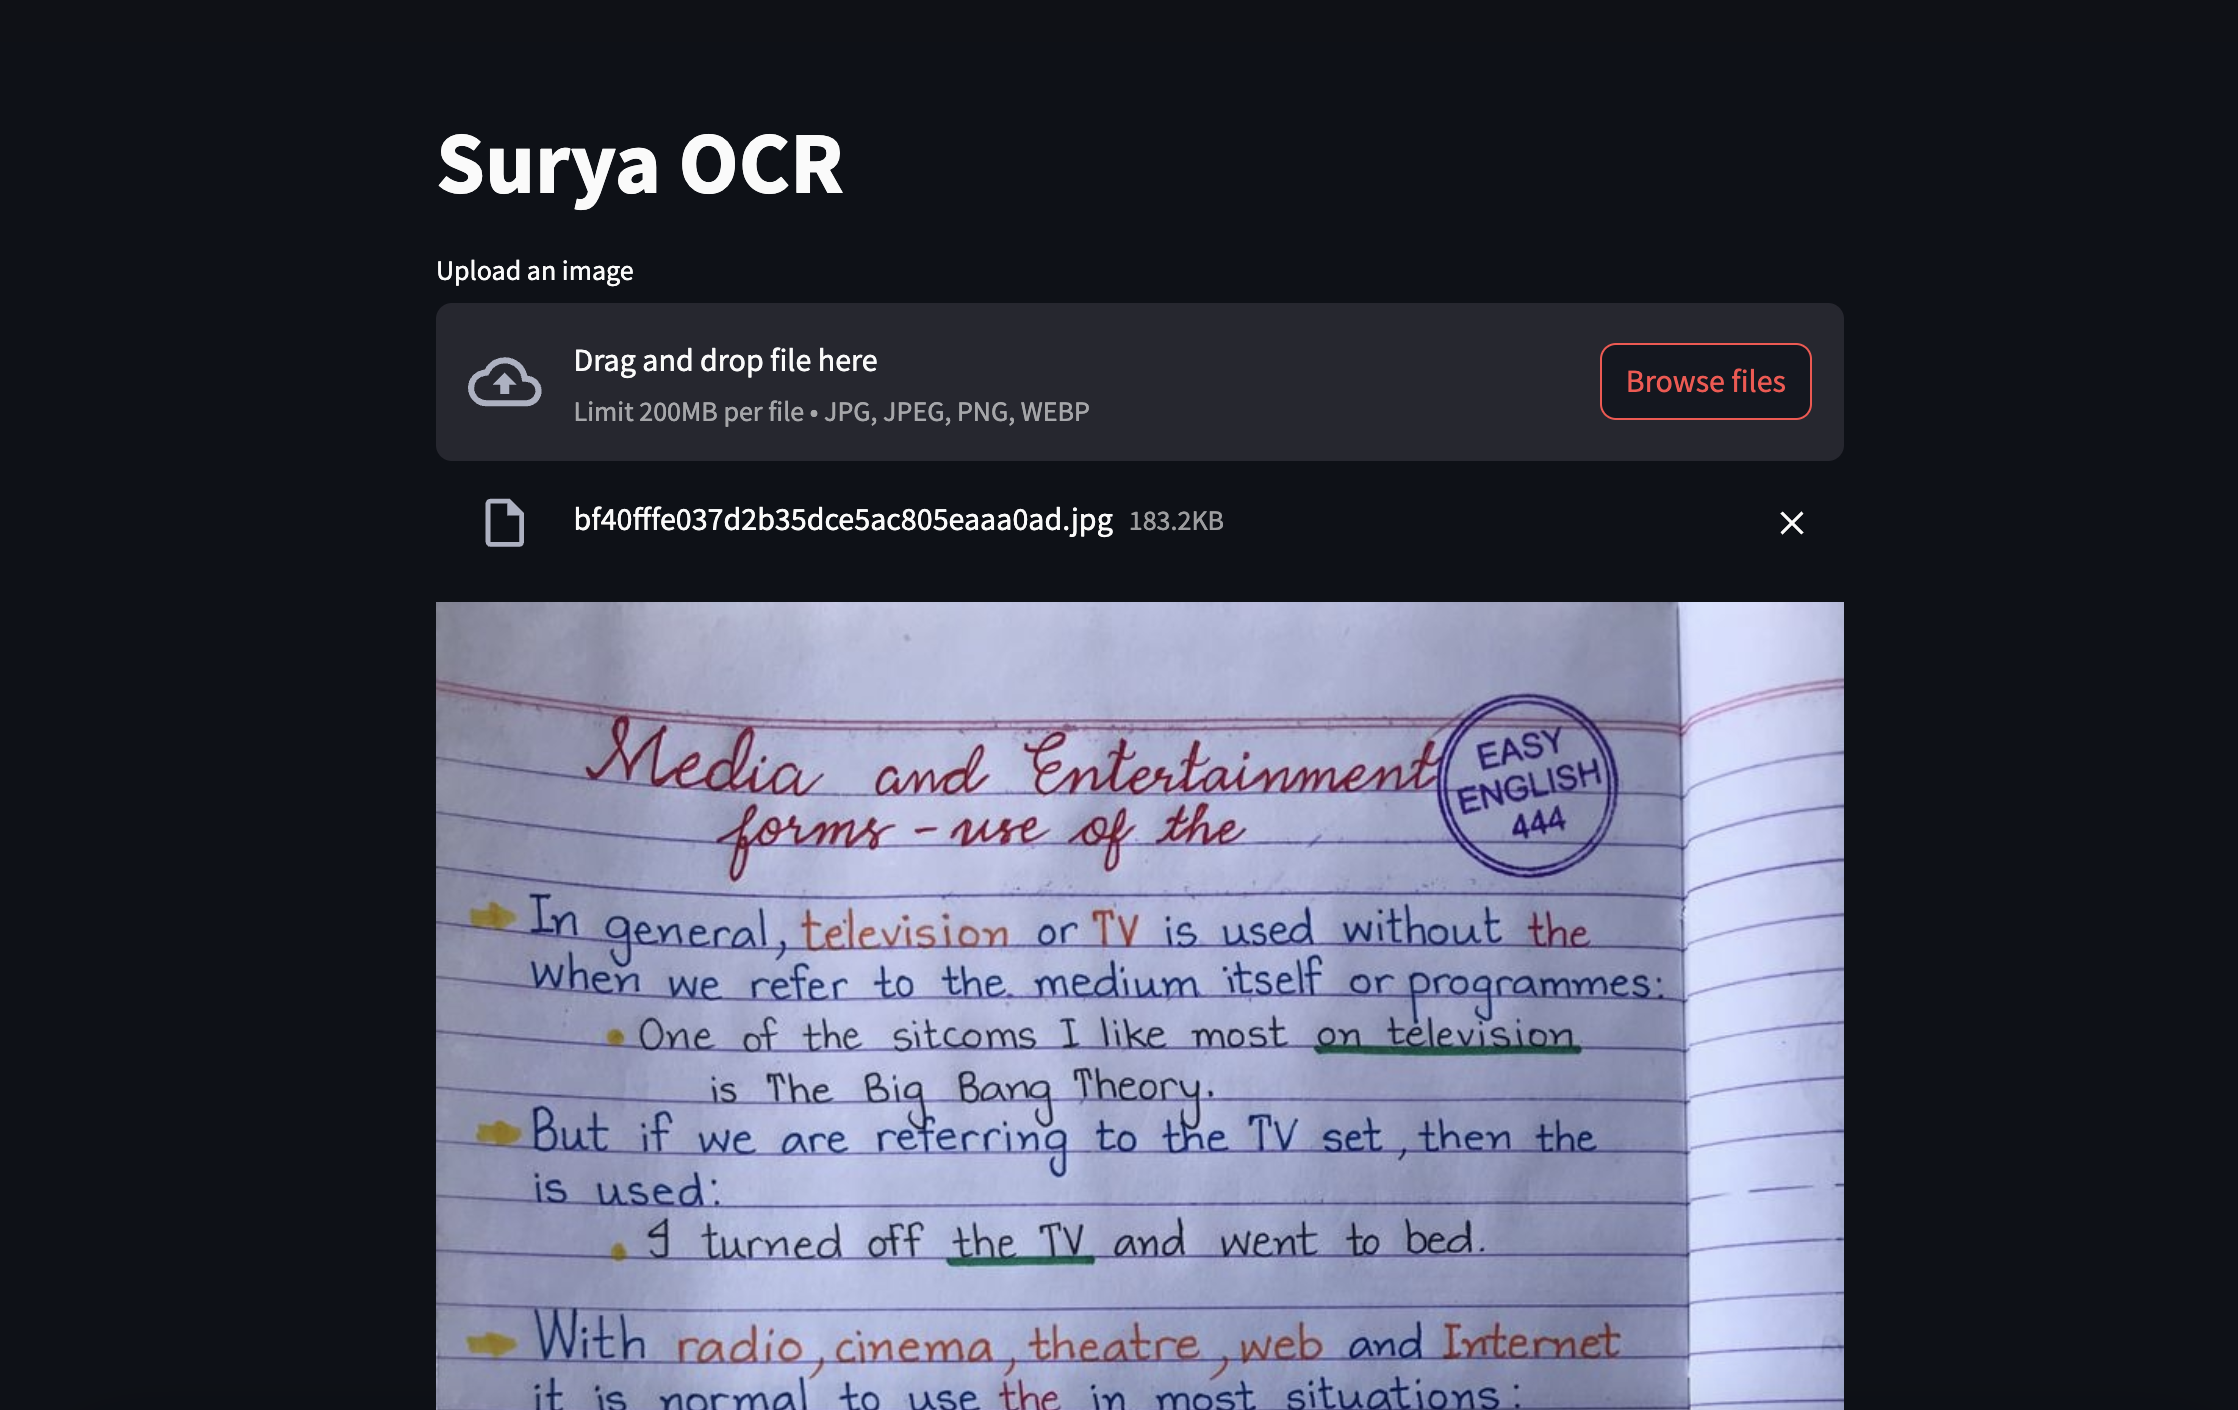 Surya OCR
Upload an image
Drag and drop file here
Limit 200MB per file • JPG, JPEG, PNG, WEBP
Browse files
bf40fffe037d2b35dce5ac805eaaa0ad.jpg 183.2KB
Media and Entertainment
forms - use of the
EASY
ENGLISH
444
In general, television or TV is used without the
when we refer to the medium itself or programmes:
• One of the sitcoms I like most on television
is The Big Bang Theory.
But if we are referring to the TV set, then the
is used:
• I turned off the TV and went to bed.
With radio, cinema, theatre, web and Internet
it is normal to use the in most situations: